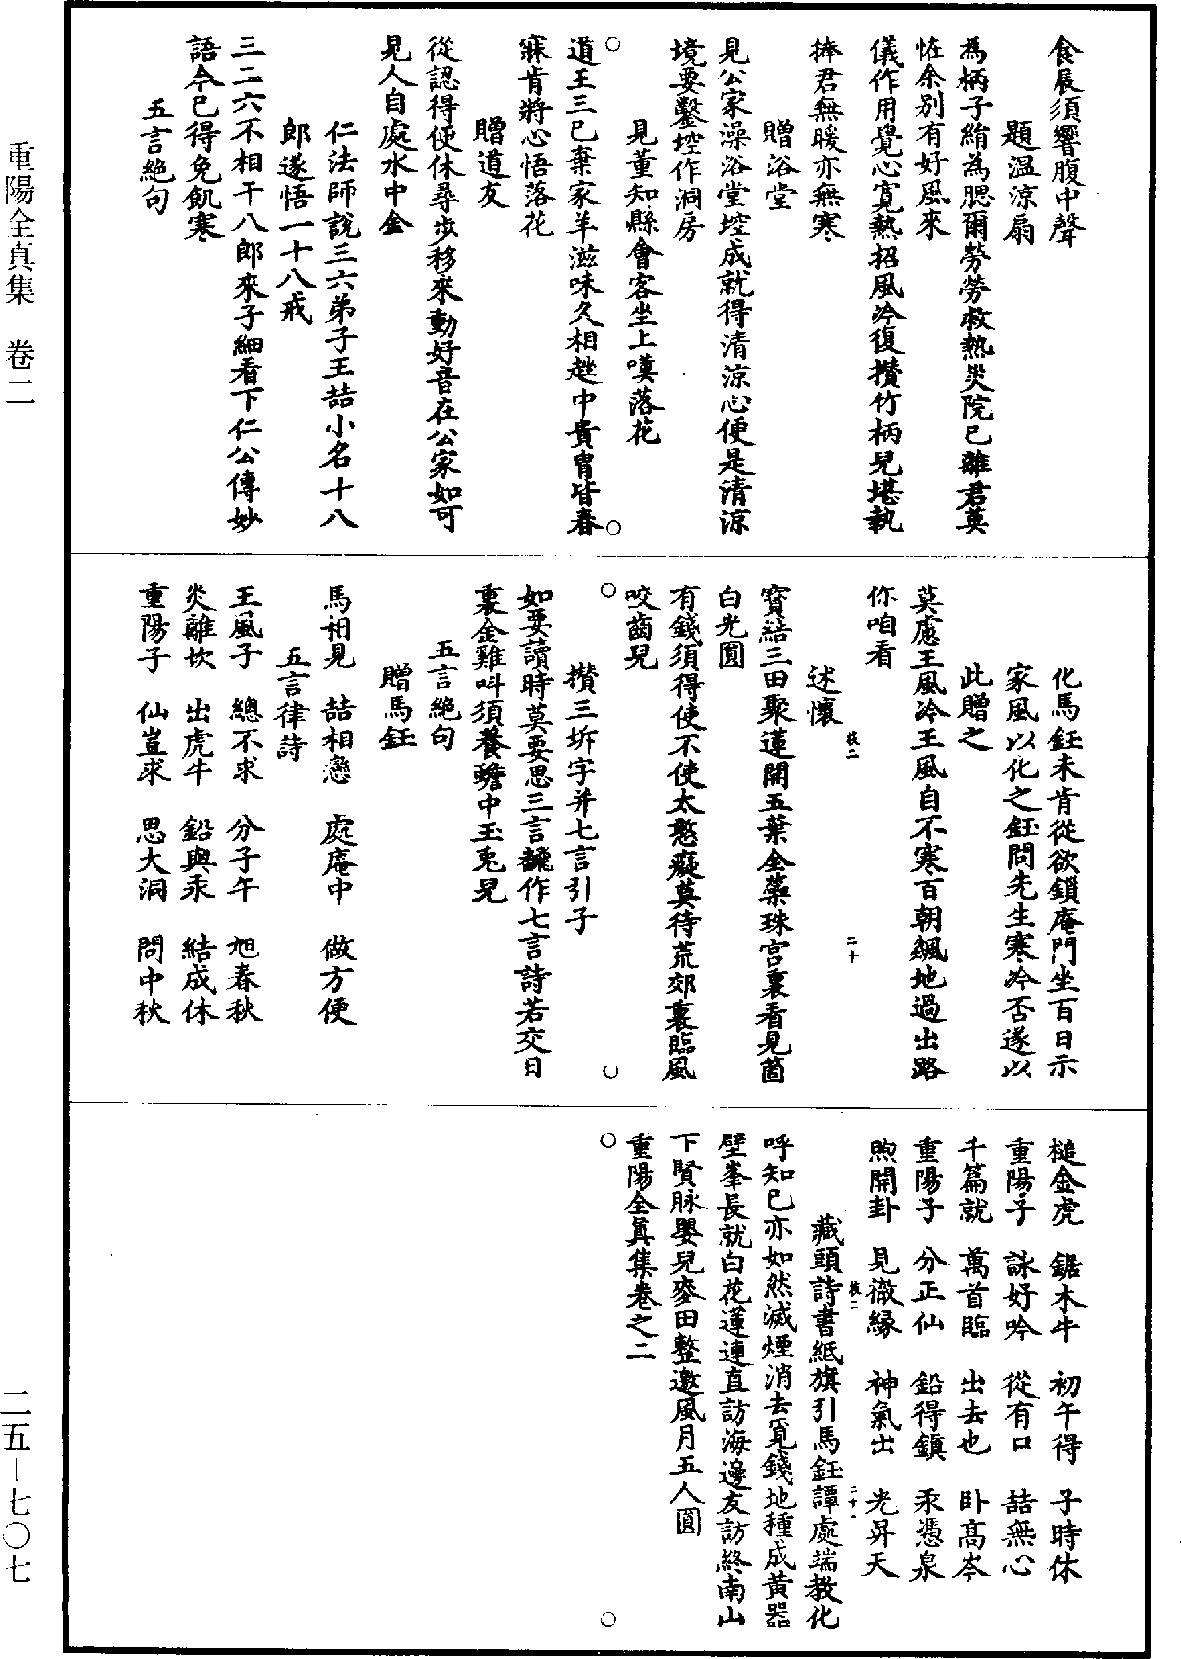 食展須響腹中聲
題溫涼扇
為柄子綃為腮爾勞勞救熱炎院已離君莫
恠余別有好風來
儀作用覺心寬熱招風冷復攅竹柄兒堪執
捧君無暖亦無寒
贈浴堂
見公家澡浴堂堂成就得清涼心便是清涼
境要鑿堂作洞房
見董知縣會客坐上嘆落花
道王三已棄家羊滋味久相趂中貴胄皆春
寐肯將心悟落花
贈道友
從認得便休尋步移來動好音在公家如可
見人自處水中金
仁法師說三六弟子王喆小名十八
郎遂悟一十八戒
三二六不相干八郎來子細看下仁公傳妙
語今已得免飢寒
五言絕句
化馬鈺未肯從欲鎖庵門坐百日示
家風以化之鈺問先生寒冷否遂以
此贈之
莫慮王風冷王風自不寒百朝飆地過出路
你咱看
述懷
寶結三田聚蓮開五葉全蘂珠宮裏看見箇
白光圓
有錢須得使不使太憨癡莫待荒郊裏臨風
咬齒兒
攅三坼字并七言引子
如要讀時莫要思三言飜作七言詩若交日
裏金雞叫須養蟾中玉兎兒
五言絕句
贈馬鈺
馬相見 喆相戀 處庵中 做方便
五言律詩
王風子 總不求 分子午 旭春秋
炎離坎 出虎牛 鉛與汞 結成休
重陽子 仙豈求 思大洞 問中秋
槌金虎 鋸木牛 初午得 子時休
重陽子 詠好吟 從有口 喆無心
千篇就 萬首臨 出去也 卧高岑
重陽子 分正仙 鉛得鎮 汞憑泉
煦開卦 見徹緣 神氣出 光昇天
藏頭詩書紙旗引馬鈺譚處端教化
呼知已亦如然滅煙消去覓錢地種成黃器
壁峯長就白花蓮連直訪海邊友訪終南山
下賢脉嬰兒麥田整邀風月五人圓
重陽全真集卷之二
重陽全真集 卷二
二五—七〇七